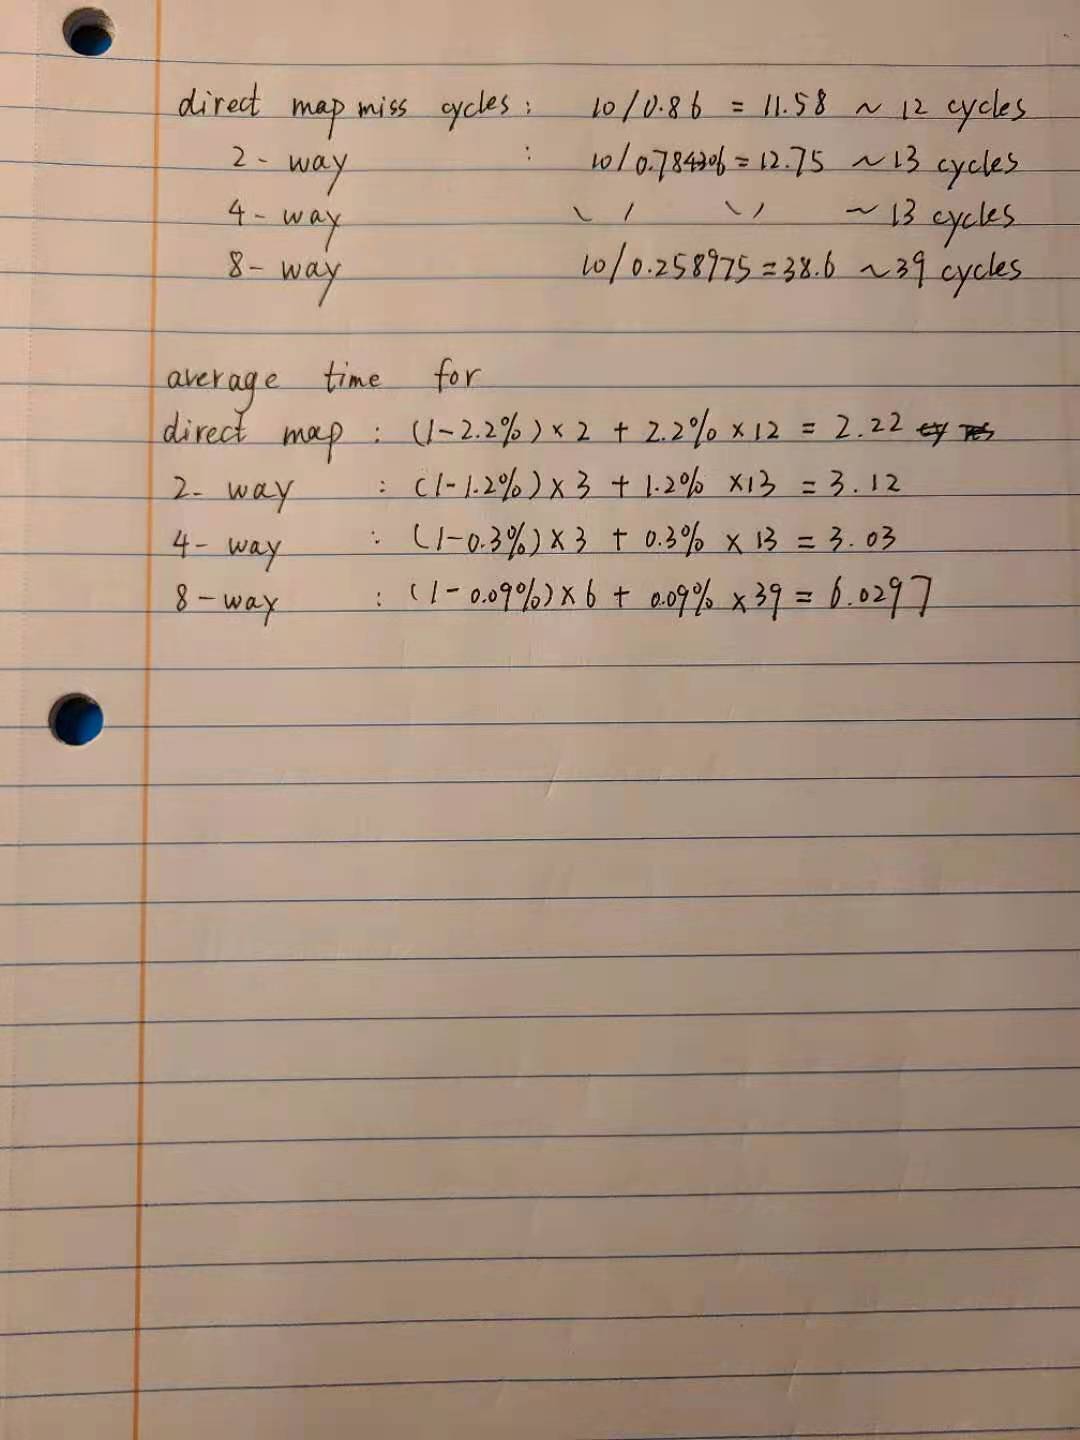 direct map miss cycles : 10/0.86 = 11.58 ~ 12 cycles
2-way : 10/0.784306 = 12.75 ~ 13 cycles
4-way 〃 〃 ~ 13 cycles
8-way 10/0.258975 = 38.6 ~ 39 cycles
average time for
direct map : (1-2.2%) × 2 + 2.2% × 12 = 2.22
2-way : (1-1.2%) × 3 + 1.2% × 13 = 3.12
4-way : (1-0.3%) × 3 + 0.3% × 13 = 3.03
8-way : (1-0.09%) × 6 + 0.09% × 39 = 6.0297